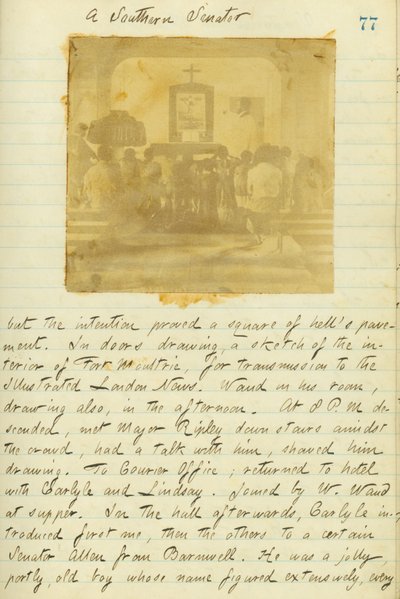 A Southern Senator
77
but the intention proved a square of hell's pave-
ment. In doors drawing, a sketch of the in-
terior of Fort Moultrie, for transmission to the
Illustrated London News. Waud in his room,
drawing also, in the afternoon. At 8 P.M. de-
scended, met Major Ripley down stairs amidst
the crowd, had a talk with him, showed him
drawing. To Courier Office; returned to hotel
with Carlyle and Lindsay. Joined by W. Waud
at supper. In the hall afterwards, Carlyle in-
troduced first me, then the others to a certain
Senator Allen from Barnwell. He was a jolly,
portly, old boy whose name figured extensively, every